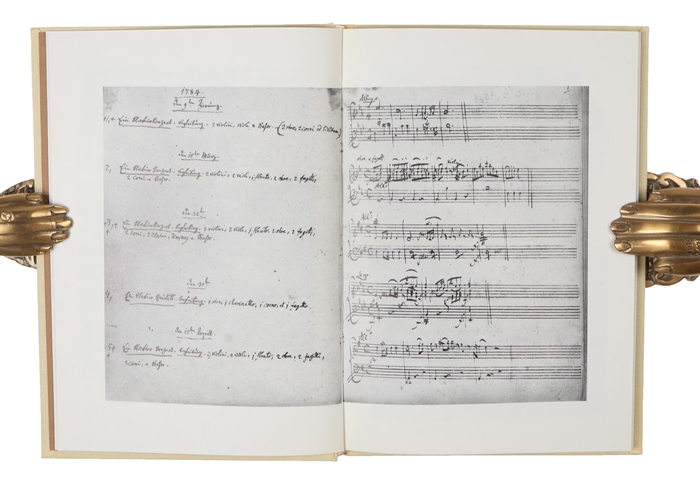 1784.
1, Ein klavierkonzert. begleitung. 2 violini, viola e Basso. (2 oboe, 2 corni ad libitum)
den 15ten März.
2, Ein klavier konzert. begleitung. 2 violini, 2 viole, 1 flauto, 2 oboe, 2 fagotti,
2 corni e Basso.
den 22ten
3, Ein klavier konzert. begleitung. 2 violini, 2 viole, 1 flauto, 2 oboe, 2 fagotti,
2 corni, 2 clarini, e Basso.
den 30ten
4, Ein klavier Quintett. begleitung. 1 oboe, 1 clarinetto, 1 corno, et 1 fagotto.
Ein klavier konzert. begleitung. 2 violini, 2 viole, 1 flauto, 2 oboe, 2 fagotti,
2 corni, e Basso.
Allegro
oboe e fagotti
viol:
All:
All:
Largo
All: